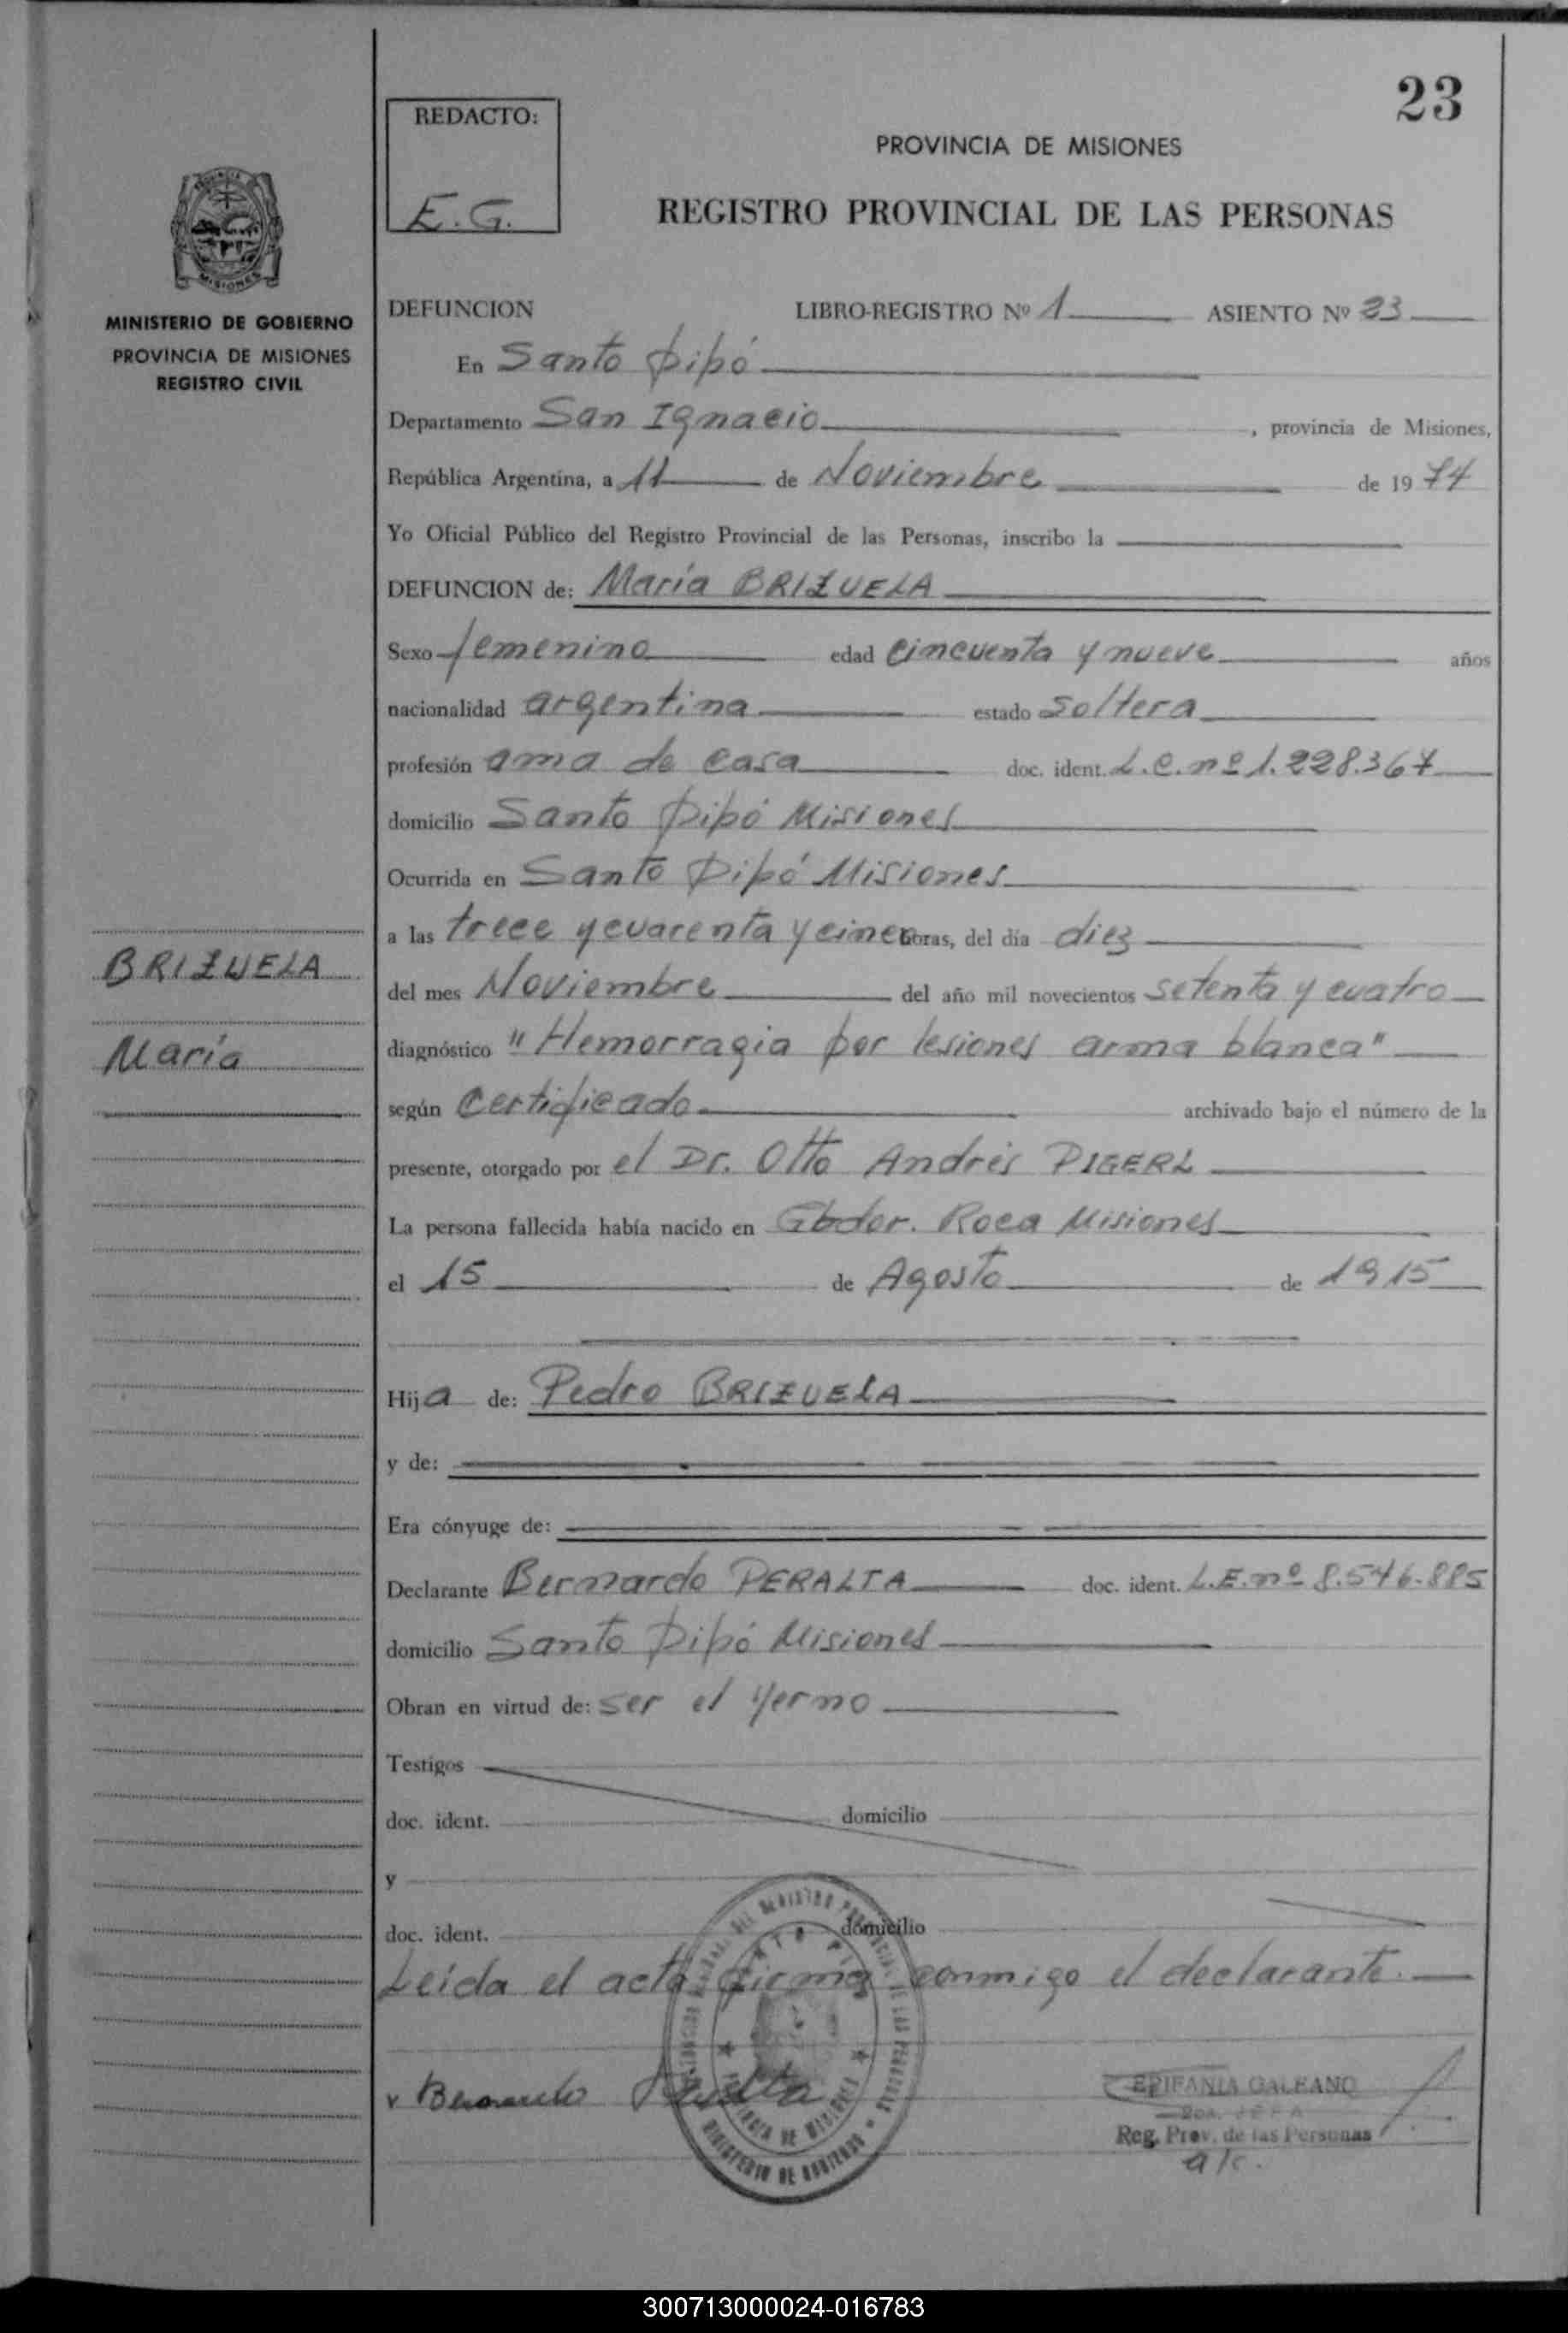 23
REDACTO:
E.G.
PROVINCIA DE MISIONES
REGISTRO PROVINCIAL DE LAS PERSONAS
MISIONES
MINISTERIO DE GOBIERNO
PROVINCIA DE MISIONES
REGISTRO CIVIL
DEFUNCION LIBRO-REGISTRO Nº 1 ASIENTO Nº 23
En Santo Pipó
Departamento San Ignacio, provincia de Misiones,
República Argentina, a 11 de Noviembre de 1974
Yo Oficial Público del Registro Provincial de las Personas, inscribo la
DEFUNCION de: María BRIZUELA
Sexo femenino edad cincuenta y nueve años
nacionalidad argentina estado soltera
profesión ama de casa doc. ident. L.C. nº 1.228.367
domicilio Santo Pipó Misiones
Ocurrida en Santo Pipó Misiones
a las trece y cuarenta y cinco horas, del día diez
BRIZUELA
del mes Noviembre del año mil novecientos setenta y cuatro
María
diagnóstico "Hemorragia por lesiones arma blanca"
según Certificado archivado bajo el número de la
presente, otorgado por el Dr. Otto Andrés PIGERL
La persona fallecida había nacido en Gbdor. Roca Misiones
el 15 de Agosto de 1915
Hija de: Pedro BRIZUELA
y de:
Era cónyuge de:
Declarante Bernardo PERALTA doc. ident. L.E. nº 8.546.885
domicilio Santo Pipó Misiones
Obran en virtud de: ser el yerno
Testigos
doc. ident. domicilio
y
doc. ident. domicilio
Leída el acta firma conmigo el declarante.
Bernardo Peralta
EPIFANIA GALEANO
Reg. Prov. de las Personas
a/c.
MINISTERIO DE GOBIERNO
300713000024-016783